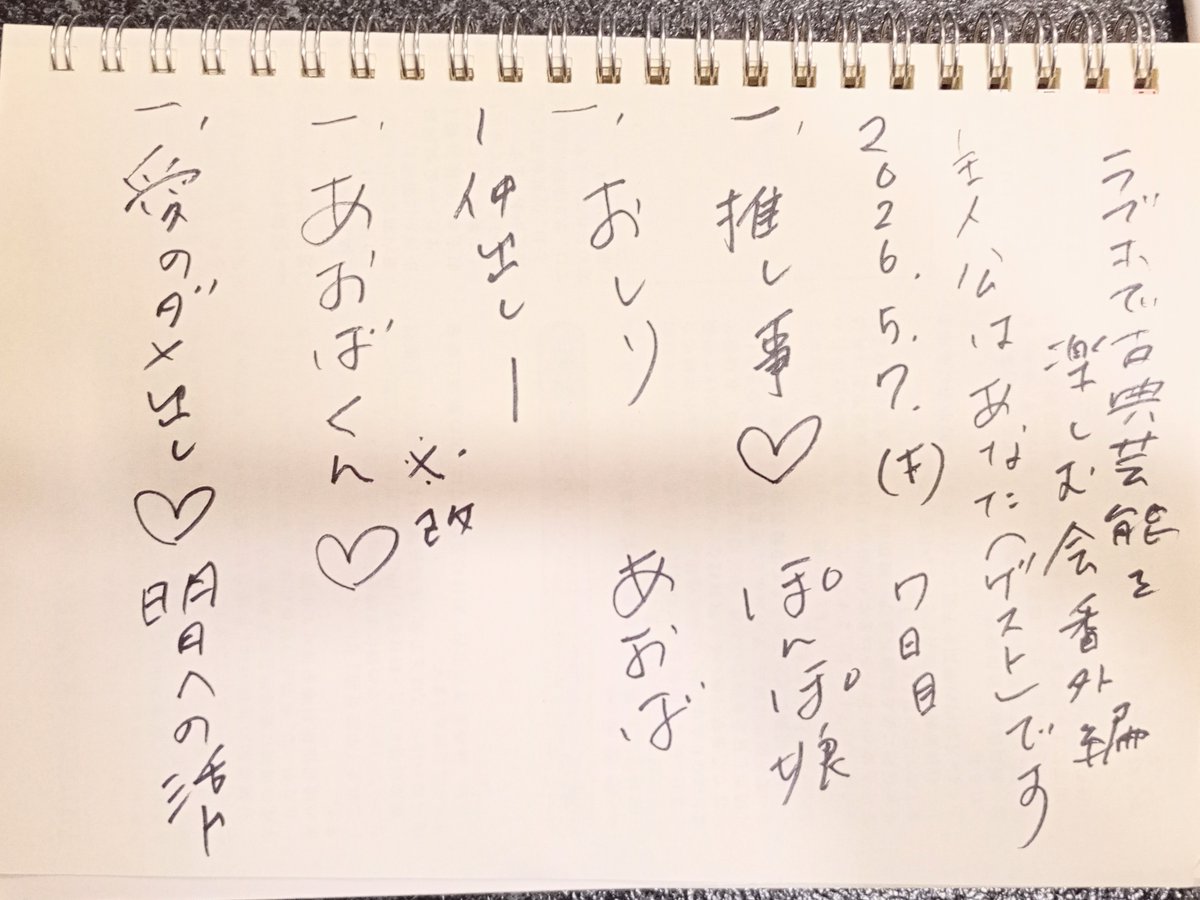 ラブホで古典芸能を
楽しむ会番外編
主人公はあなた(ゲスト)です
2026.5.7.(木) 7日目
一、推し事♡ ぽんぽ娘
一、おしり あおば
ー仲出しー
※改
一、あおばくん♡
一、愛のダメ出し♡明日への活